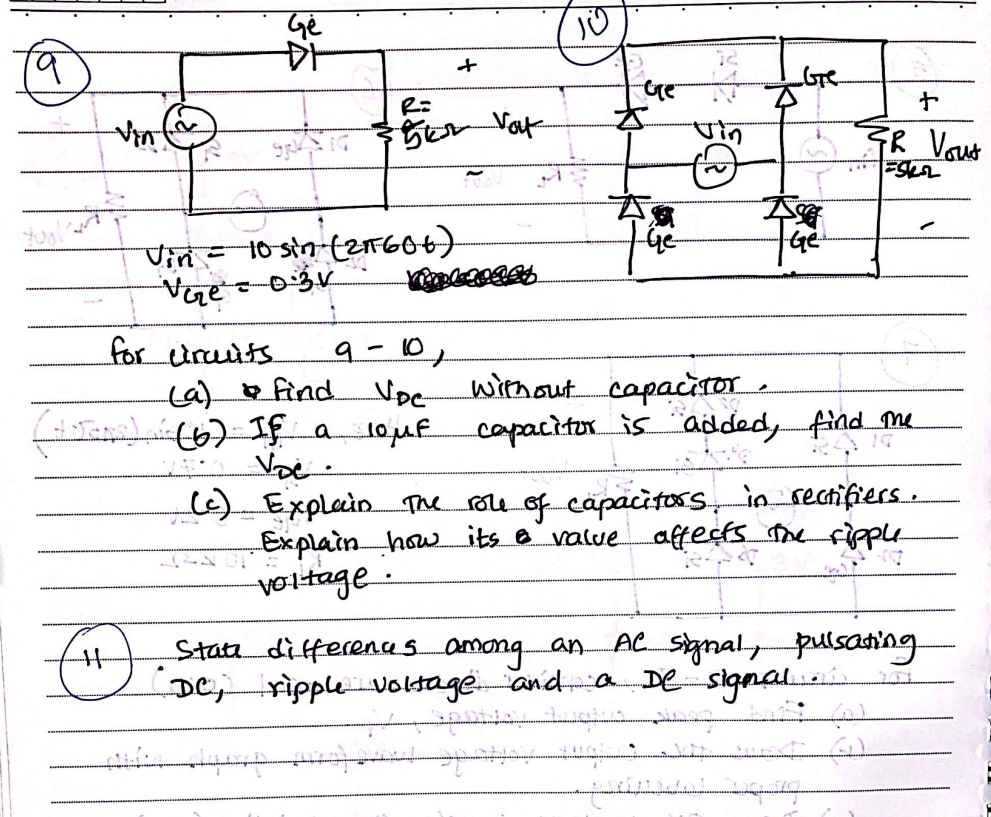 9
Ge
Vin
R=
5kΩ
+
Vout
-
Vin = 10 sin (2π60t)
VGe = 0.3V
10
Ge
Ge
Vin
Ge
Ge
R
=5kΩ
+
Vout
-
for circuits 9 - 10,
(a) Find VDC without capacitor.
(b) If a 10μF capacitor is added, find the
VDC.
(c) Explain the role of capacitors in rectifiers.
Explain how its value affects the ripple
voltage.
11
State differences among an AC signal, pulsating
DC, ripple voltage and a DC signal.